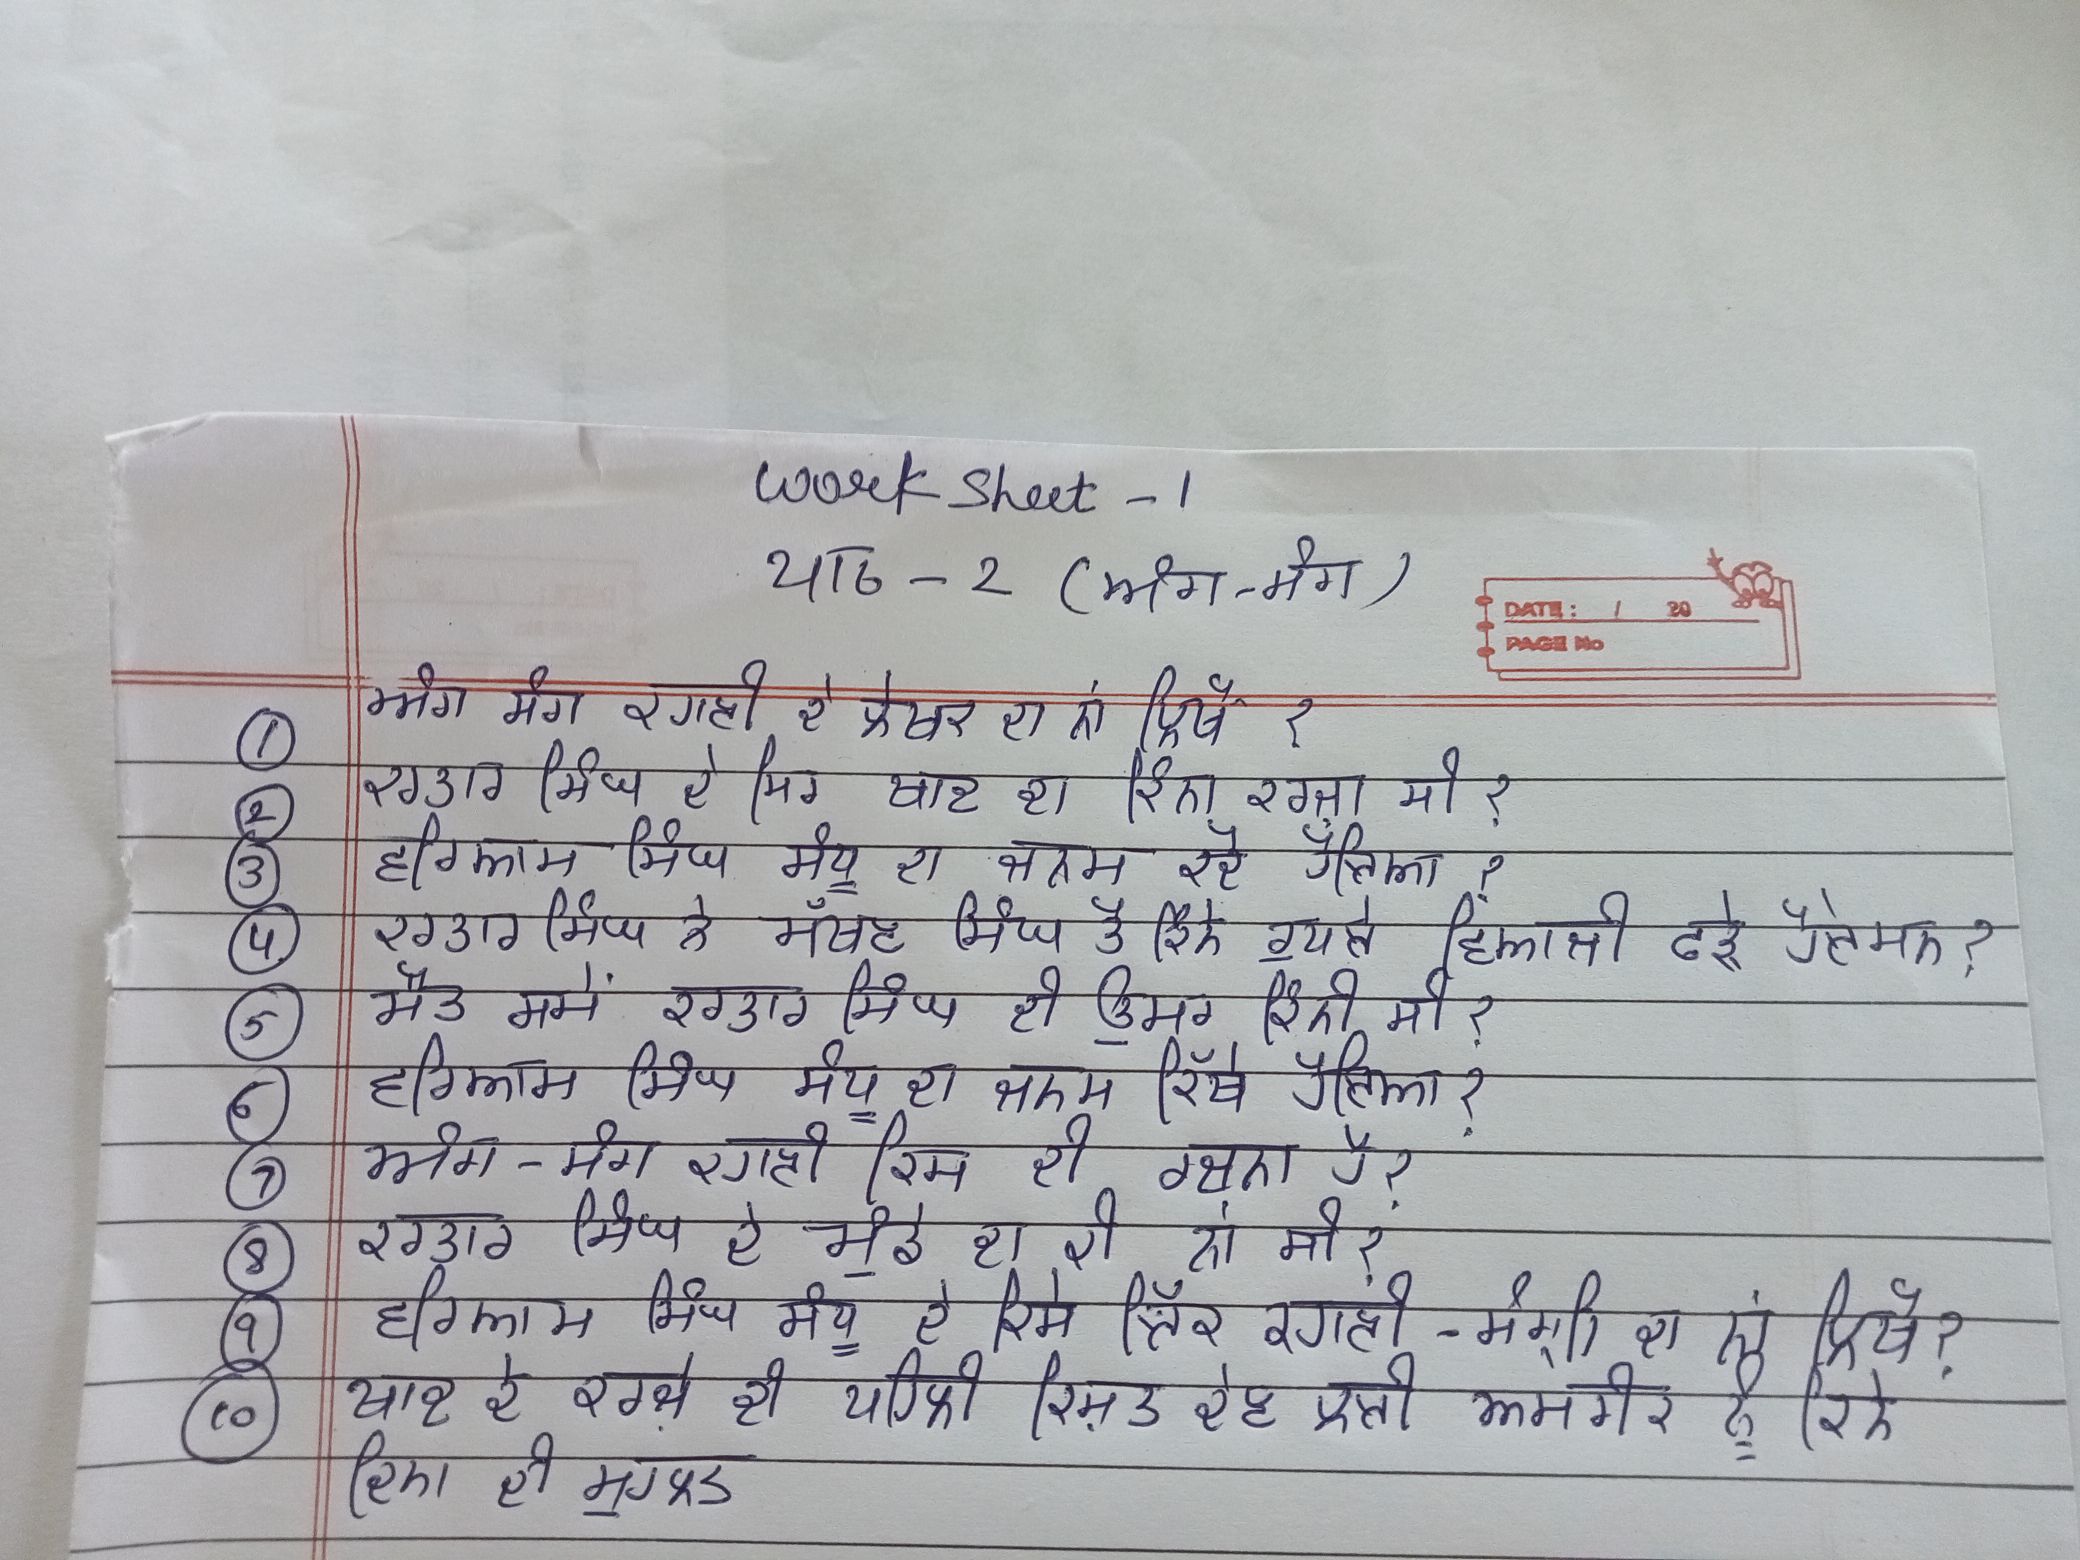 Work Sheet - 1
ਪਾਠ - 2 (ਅੰਗ-ਸੰਗ)
DATE: / 20
PAGE No
① ਅੰਗ ਸੰਗ ਕਹਾਣੀ ਦੇ ਲੇਖਕ ਦਾ ਨਾਂ ਲਿਖੋ ?
② ਕਰਤਾਰ ਸਿੰਘ ਦੇ ਸਿਰ ਖਾਦ ਦਾ ਕਿੰਨਾ ਕਰਜ਼ਾ ਸੀ ?
③ ਵਰਿਆਮ ਸਿੰਘ ਸੰਧੂ ਦਾ ਜਨਮ ਕਦੋਂ ਹੋਇਆ ?
④ ਕਰਤਾਰ ਸਿੰਘ ਨੇ ਮੱਖਣ ਸਿੰਘ ਤੋਂ ਕਿੰਨੇ ਰੁਪਏ ਵਿਆਜੀ ਫੜੇ ਹੋਏ ਸਨ ?
⑤ ਮੌਤ ਸਮੇਂ ਕਰਤਾਰ ਸਿੰਘ ਦੀ ਉਮਰ ਕਿੰਨੀ ਸੀ ?
⑥ ਵਰਿਆਮ ਸਿੰਘ ਸੰਧੂ ਦਾ ਜਨਮ ਕਿੱਥੇ ਹੋਇਆ ?
⑦ ਅੰਗ - ਸੰਗ ਕਹਾਣੀ ਕਿਸ ਦੀ ਰਚਨਾ ਹੈ ?
⑧ ਕਰਤਾਰ ਸਿੰਘ ਦੇ ਮੁੰਡੇ ਦਾ ਕੀ ਨਾਂ ਸੀ ?
⑨ ਵਰਿਆਮ ਸਿੰਘ ਸੰਧੂ ਦੇ ਕਿਸੇ ਇੱਕ ਕਹਾਣੀ - ਸੰਗ੍ਰਹਿ ਦਾ ਨਾਂ ਲਿਖੋ ?
⑩ ਖਾਦ ਦੇ ਕਰਜ਼ੇ ਦੀ ਪਹਿਲੀ ਕਿਸ਼ਤ ਦੇਣ ਲਈ ਅਮਰੀਕ ਨੂੰ ਕਿੰਨੇ
ਦਿਨਾ ਦੀ ਮੁਹਲਤ